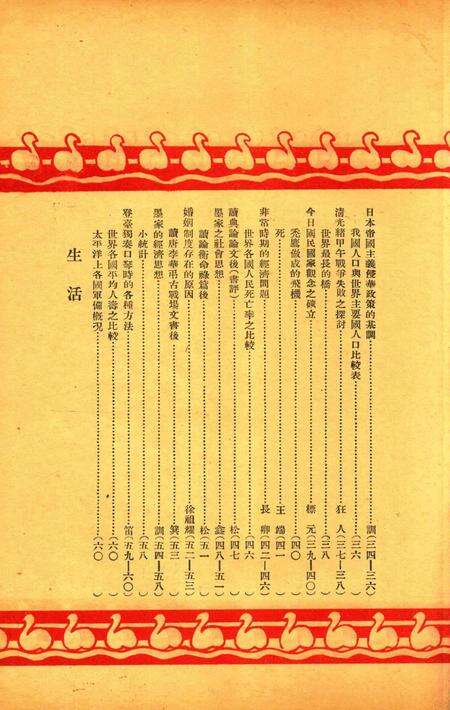 日本帝國主義侵華政策的基調……訓(三四—三六)
我國人口與世界主要國人口比較表……(三六)
清光緒甲午戰爭失敗之探討……狂人(三七—三八)
世界最長的橋……(三八)
今日國民國家觀念之確立……標元(三九—四〇)
禿鷹做成的飛機……(四〇)
死……王端(四一)
非常時期的經濟問題……長卿(四二—四六)
世界各國人民死亡率之比較……(四六)
讀典論論文後(書評)……松(四七)
墨家之社會思想……鑫(四八—五一)
讀論衡命祿篇後……松(五一)
婚姻制度存在的原因……徐祖燿(五二—五三)
讀唐李華弔古戰場文書後……箕(五三)
墨家的經濟思想……訓(五四—五八)
小統計……(五八)
登臺獨奏口琴時的各種方法……笛(五九—六〇)
世界各國平均人壽之比較……(六〇)
太平洋上各國軍備概況……(六〇)
生活